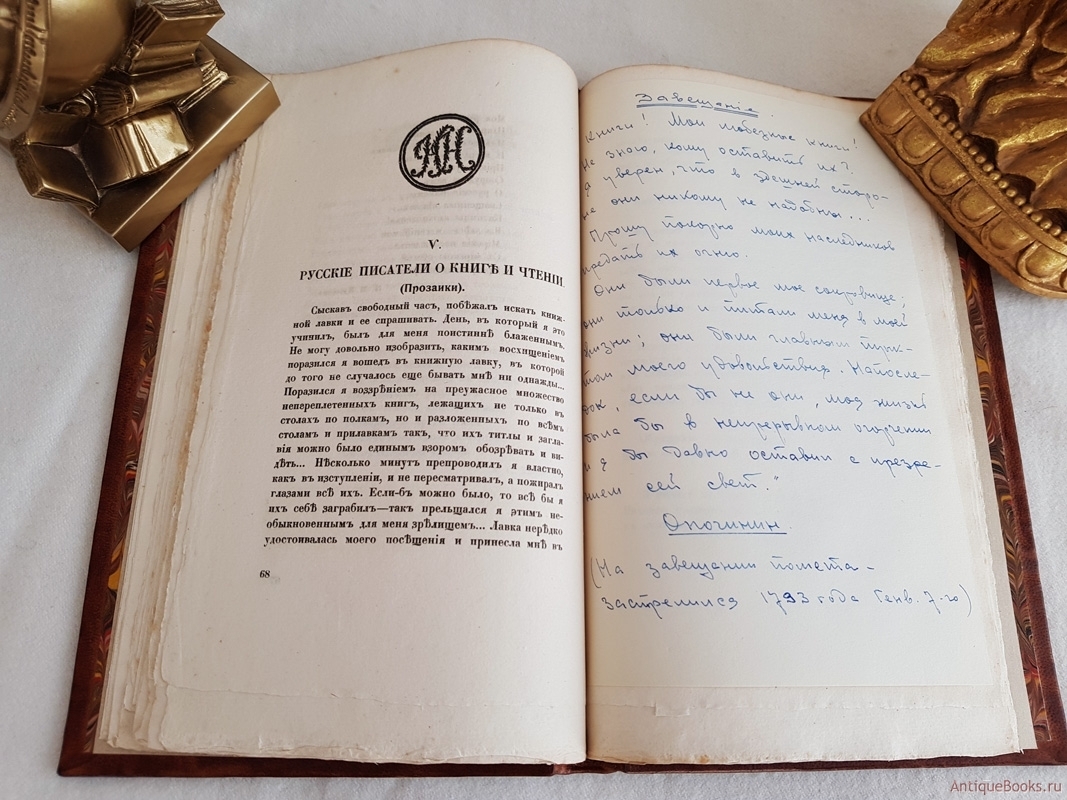 V.
РУССКІЕ ПИСАТЕЛИ О КНИГѢ И ЧТЕНІИ.
(Прозаики).
Сыскавъ свободный часъ, побѣжалъ искать книж-
ной лавки и ее спрашивать. День, въ который я это
учинилъ, былъ для меня поистиннѣ блаженнымъ.
Не могу довольно изобразить, какимъ восхищеніемъ
поразился я вошедъ въ книжную лавку, въ которой
до того не случалось еще бывать мнѣ ни однажды...
Поразился я воззрѣніемъ на преужасное множество
непереплетенныхъ книг, лежащихъ не только въ
столахъ по полкамъ, но и разложенныхъ по всѣмъ
столамъ и прилавкамъ такъ, что ихъ титлы и загла-
вія можно было единымъ взоромъ обозрѣвать и ви-
дѣть... Нѣсколько минутъ препроводилъ я властно,
какъ въ изступленіи, и не пересматривалъ, а пожиралъ
глазами всѣ ихъ. Если-бъ можно было, то всѣ бы я
ихъ себѣ заграбилъ—такъ прельщался я этимъ не-
обыкновеннымъ для меня зрѣлищемъ... Лавка нерѣдко
удостоивалась моего посѣщенія и принесла мнѣ въ
68
Завещаніе.
Книги! Мои любезные книги!
Не знаю, кому оставить их?
Я уверен, что в здешней сторо-
не они никому не надобны...
Прошу покорно моих наследников
предать их огню.
Они были первое мое сокровище;
они только и питали меня в моей
жизни; они были главным пунк-
том моего удовольствия. Напосле-
док, если бы не они, моя жизнь
была бы в непрерывном огорчении
и я бы давно оставил с презре-
нием сей свет."
Опочинин.
(На завещании помета -
застрелился 1793 года Генв. 7-го)
AntiqueBooks.ru